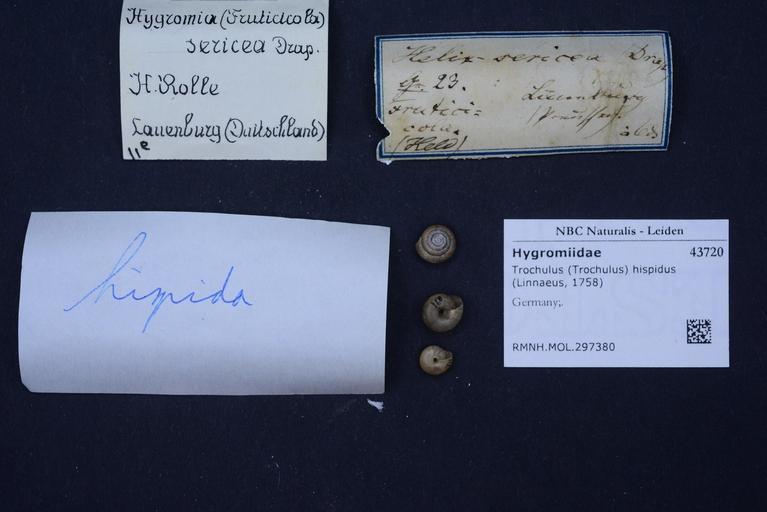 Hygromia (Fruticicola)
sericea Drap.
H. Rolle
Lauenburg (Duitschland)
11e
Helix sericea Drap
23.
Frutici=
cola.
(Held)
hispida
NBC Naturalis - Leiden
Hygromiidae 43720
Trochulus (Trochulus) hispidus
(Linnaeus, 1758)
Germany;.
RMNH.MOL.297380